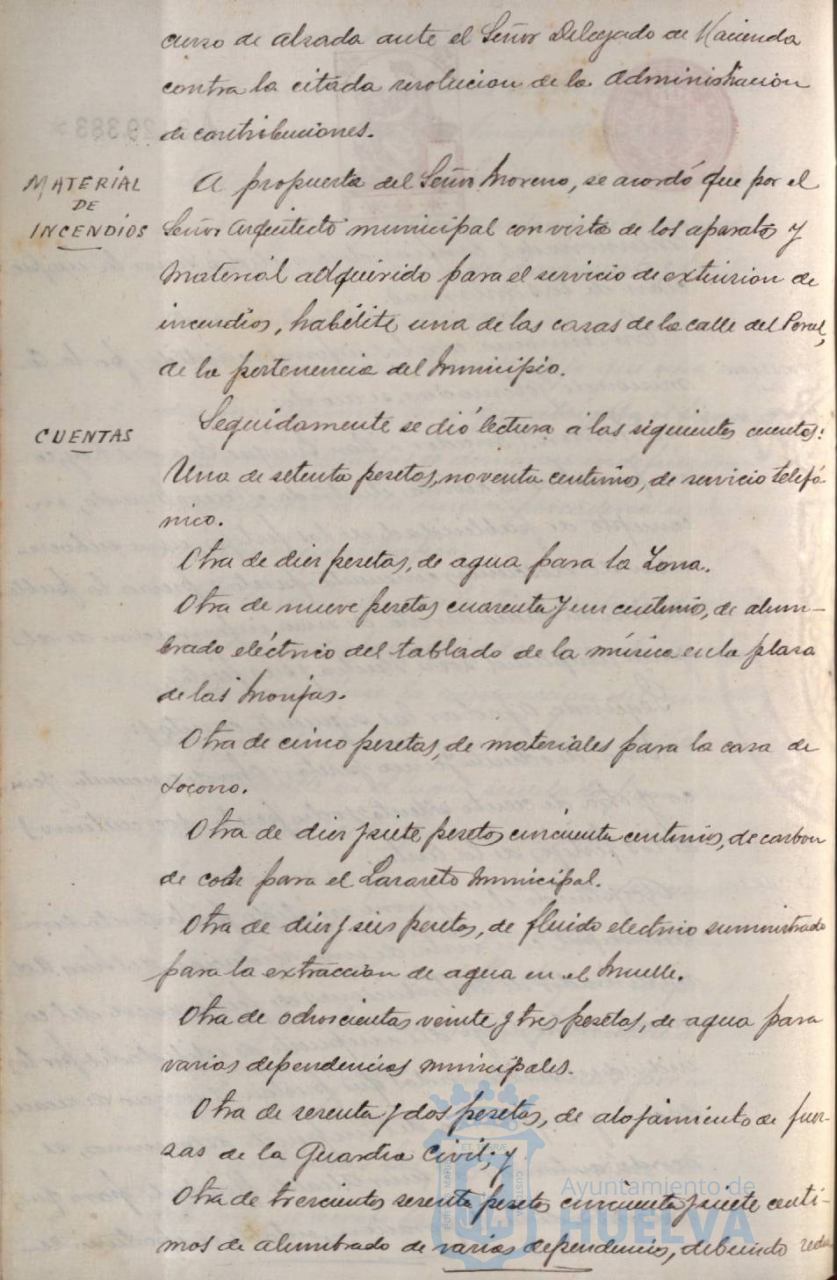 curso de alzada ante el Señor Delegado de Hacienda
contra la citada resolucion de la Administracion
de contribuciones.
MATERIAL
DE
INCENDIOS
A propuesta del Señor Moreno, se acordó que por el
Señor Arquitecto municipal con vista de los aparatos y
material adquirido para el servicio de extincion de
incendios, habilite una de las casas de la calle del Peral,
de la pertenencia del Municipio.
CUENTAS
Seguidamente se dió lectura á las siguientes cuentas:
Una de setenta pesetas, noventa centimos, de servicio telefó-
nico.
Otra de diez pesetas, de agua para la Zona.
Otra de nueve pesetas cuarenta y un centimos, de alum-
brado eléctrico del tablado de la música en la plaza
de las Monjas.
Otra de cinco pesetas, de materiales para la casa de
Socorro.
Otra de diez y siete pesetas cincuenta centimos, de carbon
de cok para el Lazareto Municipal.
Otra de diez y seis pesetas, de fluido electrico suministrado
para la extraccion de agua en el Muelle.
Otra de ochocientas veinte y tres pesetas, de agua para
varias dependencias municipales.
Otra de sesenta y dos pesetas, de alojamiento de fuer-
zas de la Guardia Civil; y
Otra de trescientas sesenta pesetas cincuenta y siete centi-
mos de alumbrado de varias dependencias, debiendo
Ayuntamiento de
HUELVA